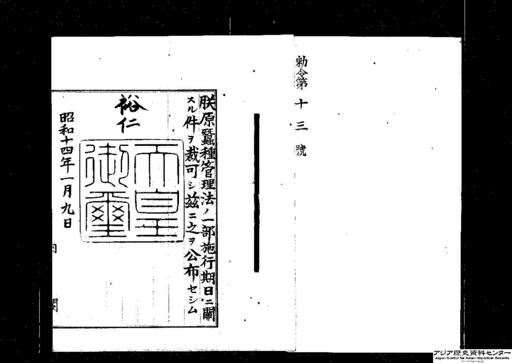 勅令第十三號
朕原蠶種管理法ノ一部施行期日ニ關
スル件ヲ裁可シ茲ニ之ヲ公布セシム
裕仁
天皇御璽
昭和十四年一月九日
アジア歴史資料センター
Japan Center for Asian Historical Records